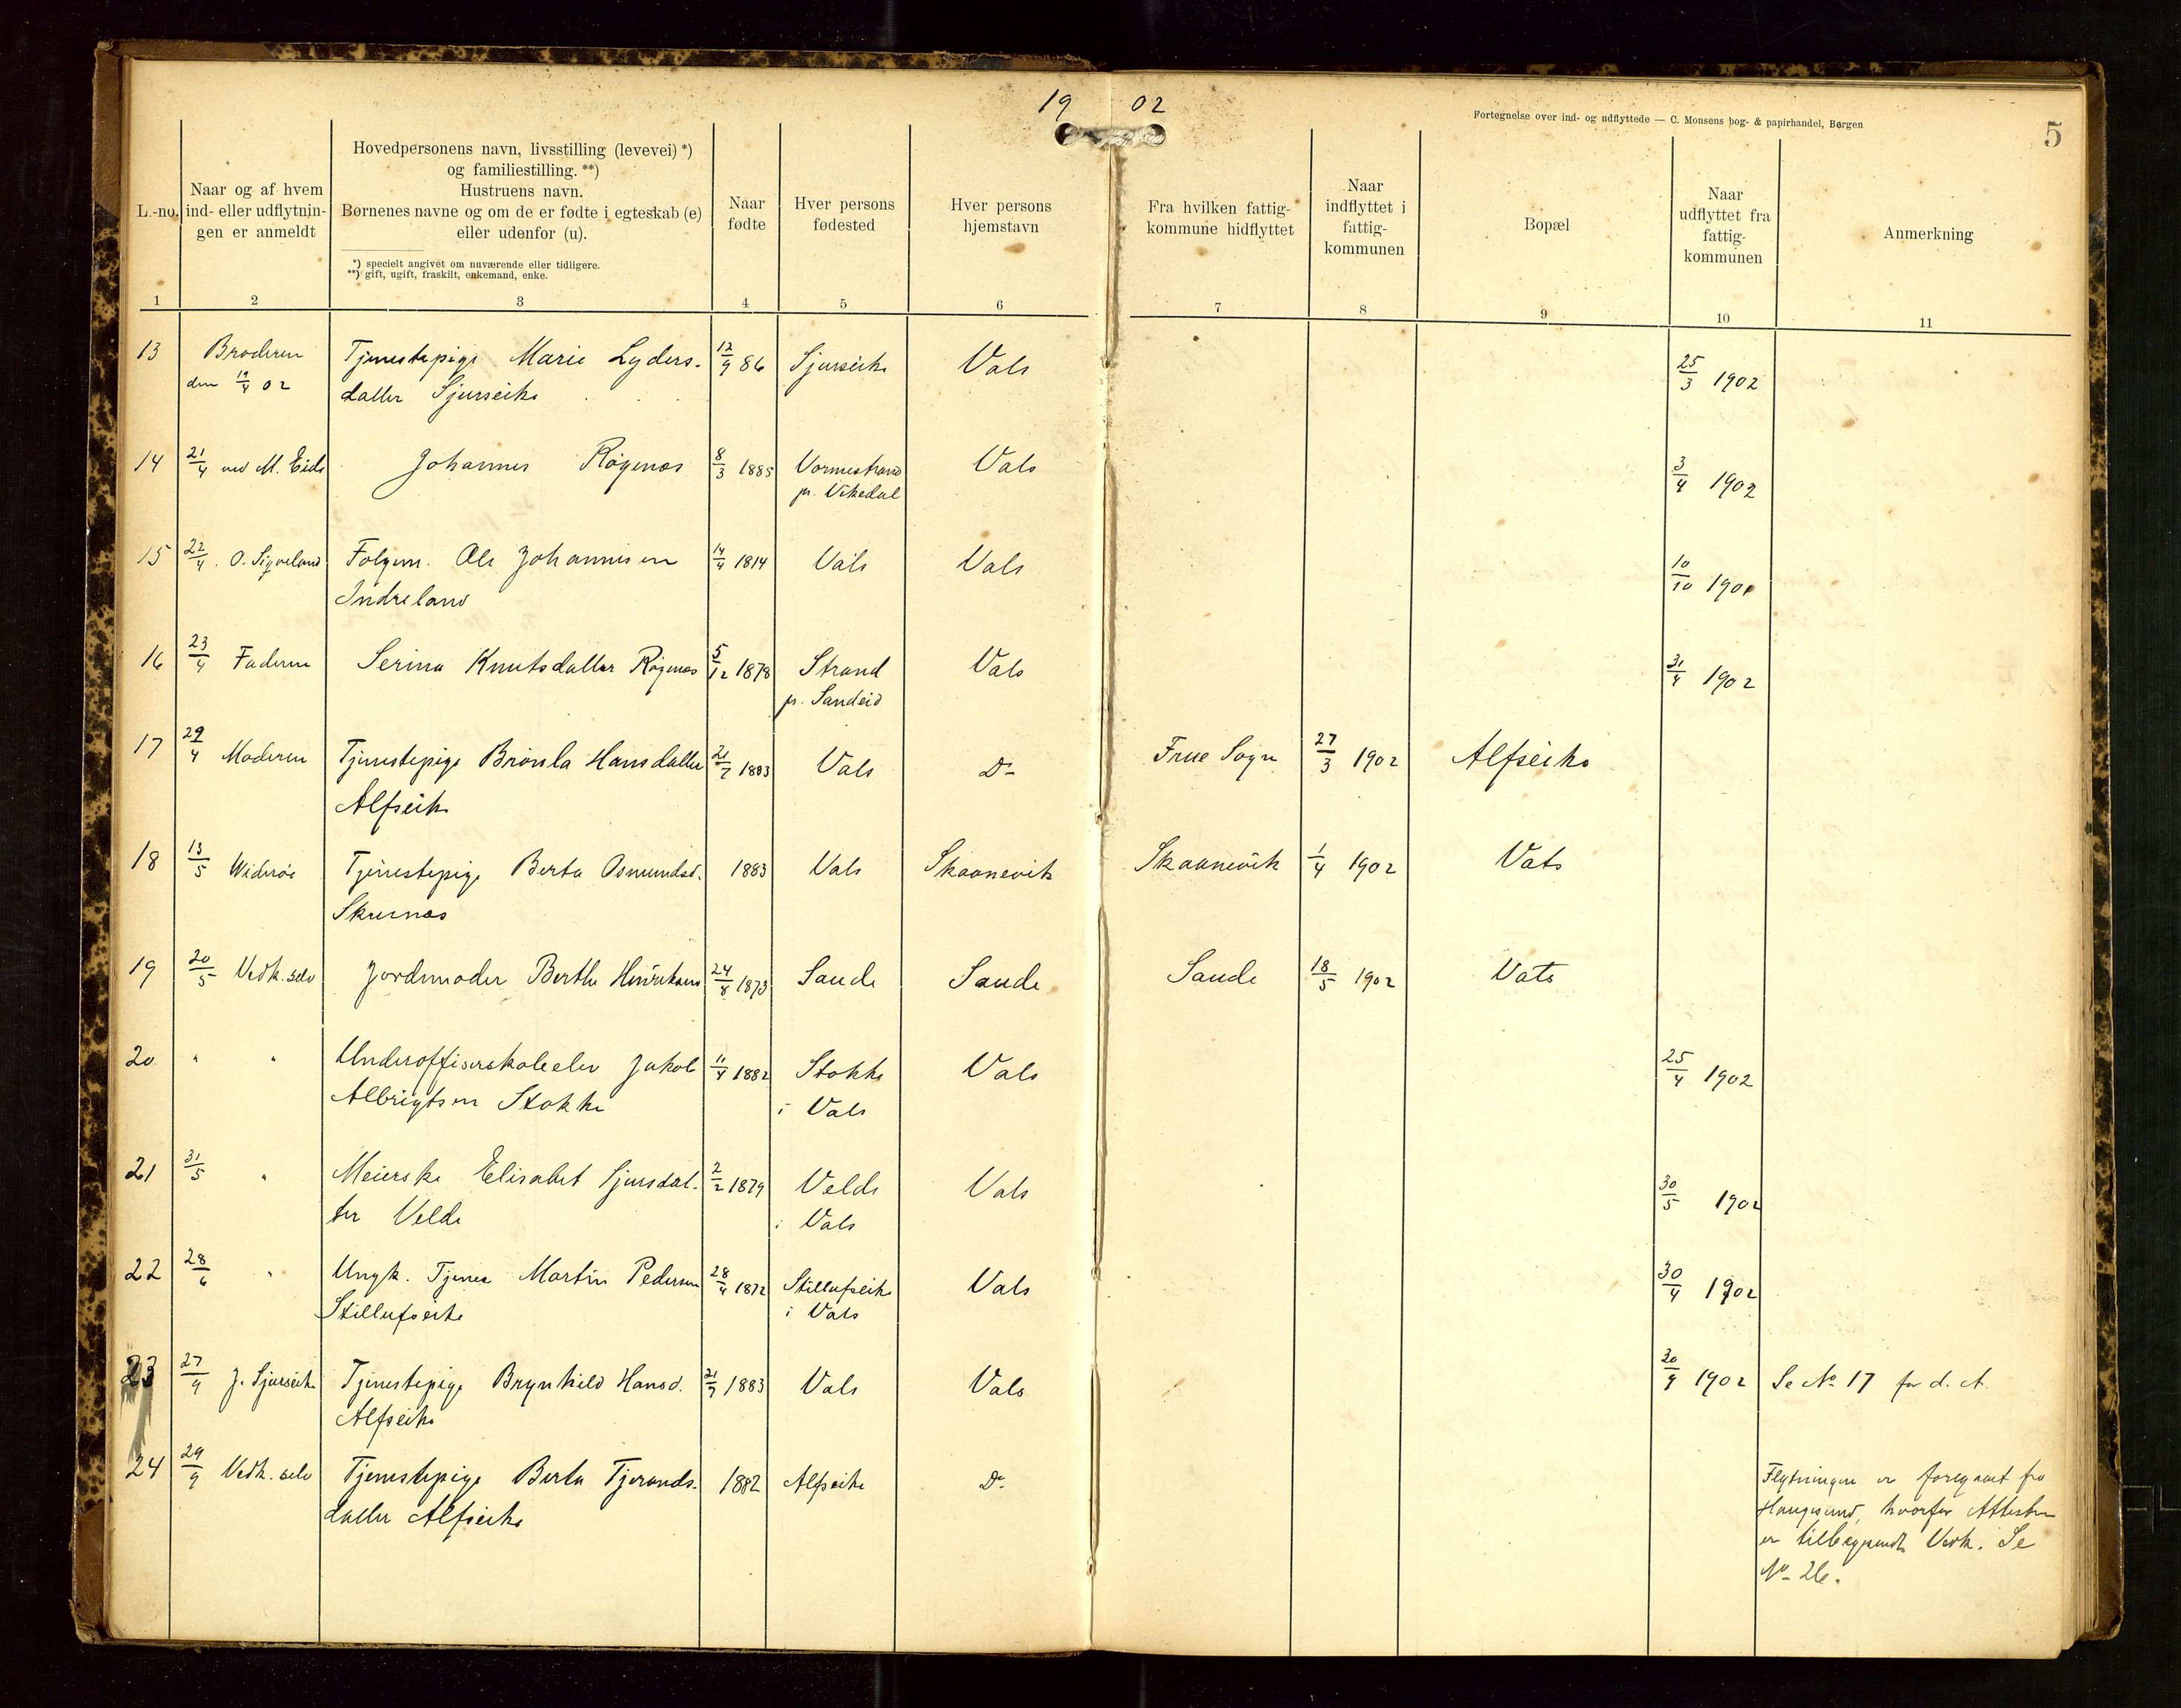 19 02
Fortegnelse over ind- og udflyttede — C. Monsens bog- & papirhandel, Bergen
5
L.-no.
Naar og af hvem
ind- eller udflytnin-
gen er anmeldt
Hovedpersonens navn, livsstilling (levevei) *)
og familiestilling. **)
Hustruens navn.
Børnenes navne og om de er fødte i egteskab (e)
eller udenfor (u).
*) specielt angivet om nuværende eller tidligere.
**) gift, ugift, fraskilt, enkemand, enke.
Naar
fødte
Hver persons
fødested
Hver persons
hjemstavn
Fra hvilken fattig-
kommune hidflyttet
Naar
indflyttet i
fattig-
kommunen
Bopæl
Naar
udflyttet fra
fattig-
kommunen
Anmerkning
1 2 3 4 5 6 7 8 9 10 11
13 Broderen Tjenestepige Marie Lyders- 12/9 86 Sjurseike Vats 25/3 1902
den 19/4 02 datter Sjurseike
14 21/4 ved M. Eide Johannes Røgenes 8/3 1885 Vormestrand Vats 3/4 1902
pr. Vikedal
15 22/4 O. Sigveland Folgem. Ole Johannesen 14/4 1814 Vats Vats 10/10 1901
Indreland
16 23/4 Faderen Serina Knutsdatter Røgenes 5/12 1878 Strand Vats 31/4 1902
pr. Sandeid
17 29/4 Moderen Tjenestepige Brønla Hansdatter 21/7 1883 Vats Do Frue Sogn 27/3 1902 Alfseike
Alfseike
18 13/5 Widerøe Tjenestepige Berta Osmundsd. 1883 Vats Skaanevik Skaanevik 1/4 1902 Vats
Skurnes
19 20/5 Vedk. selv Jordmoder Berthe Henriksen 24/8 1873 Saude Saude Saude 18/5 1902 Vats
20 " " Underoffiserskoleelev Jakob 11/4 1882 Stokke Vats 25/4 1902
Albrigtsen Stokke i Vats
21 31/5 " Meierske Elisabet Sjursdat- 2/2 1879 Velde Vats 30/5 1902
ter Velde i Vats
22 28/6 " Ungk. Tjener Martin Pedersen 28/4 1872 Stillufseike Vats 30/4 1902
Stillufseike i Vats
23 27/9 J. Sjurseike Tjenestepige Brynhild Hansd. 21/7 1883 Vats Vats 30/9 1902 Se No 17 for d. A.
Alfseike
24 29/9 Vedk. selv Tjenestepige Berta Tjerands- 1882 Alfseike Do
datter Alfseike
Flytningen er foregaaet fra
Haugesund, hvorfor Attesten
er tilbagesendt Vedk. Se
No 26.